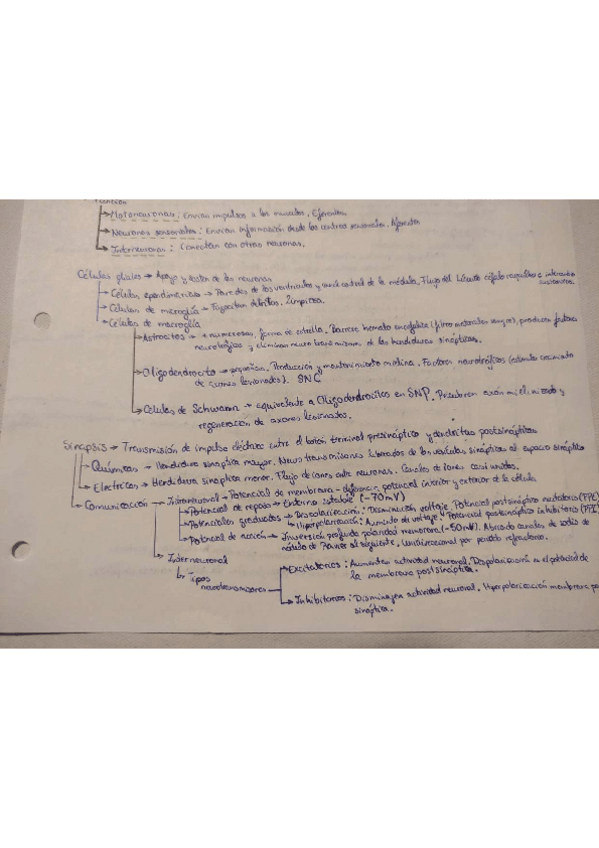 Función
Motoneuronas: Envían impulsos a los músculos. Eferentes
Neuronas sensoriales: Envían información desde los centros sensoriales. Aferentes
Interneuronas: Conectan con otras neuronas.
Células gliales → Apoyo y sostén de las neuronas
Células ependimarias → Paredes de los ventrículos y canal central de la médula. Flujo del Líquido céfalo raquídeo e intercambio
sustancias.
Células de microglía → Fagocitan detritos. Limpieza.
Células de macroglía
Astrocitos → + numerosas, forma de estrella. Barrera hemato encefálica (filtro materiales sangre), producen factores
neurotróficos y eliminan neurotransmisores de las hendiduras sinápticas.
Oligodendrocito → pequeñas. Producción y mantenimiento mielina. Factores neurotróficos (estimulo crecimiento
de axones lesionados). SNC
Células de Schwann → equivalente a Oligodendrocitos en SNP. Recubren axón mielinizado y
regeneración de axones lesionados.
Sinapsis → Transmisión de impulso eléctrico entre el botón terminal presináptico y dendritas postsinápticas
Químicas → Hendidura sináptica mayor. Neurotransmisores liberados de las vesículas sinápticas al espacio sináptico
Eléctricas → Hendidura sináptica menor. Flujo de iones entre neuronas. Canales de iones casi unidos.
Comunicación → Intraneuronal → Potencial de membrana → diferencia potencial interior y exterior de la célula
Potencial de reposo → Entorno estable (-70mV)
Potenciales graduados → Despolarización: Disminución voltaje. Potencial postsináptico excitatorio (PPE)
Hiperpolarización: Aumento de voltaje. Potencial postsináptico inhibitorio (PPI)
Potencial de acción → Inversión profunda polaridad membrana (-50mV). Abriendo canales de sodio de
nódulo de Ranvier al siguiente. Unidireccional por periodo refractario.
Interneuronal
Tipos
neurotransmisores
Excitatorios: Aumentan actividad neuronal. Despolarización en el potencial de
la membrana postsináptica.
Inhibitorios: Disminuyen actividad neuronal. Hiperpolarización membrana pos
sináptica.